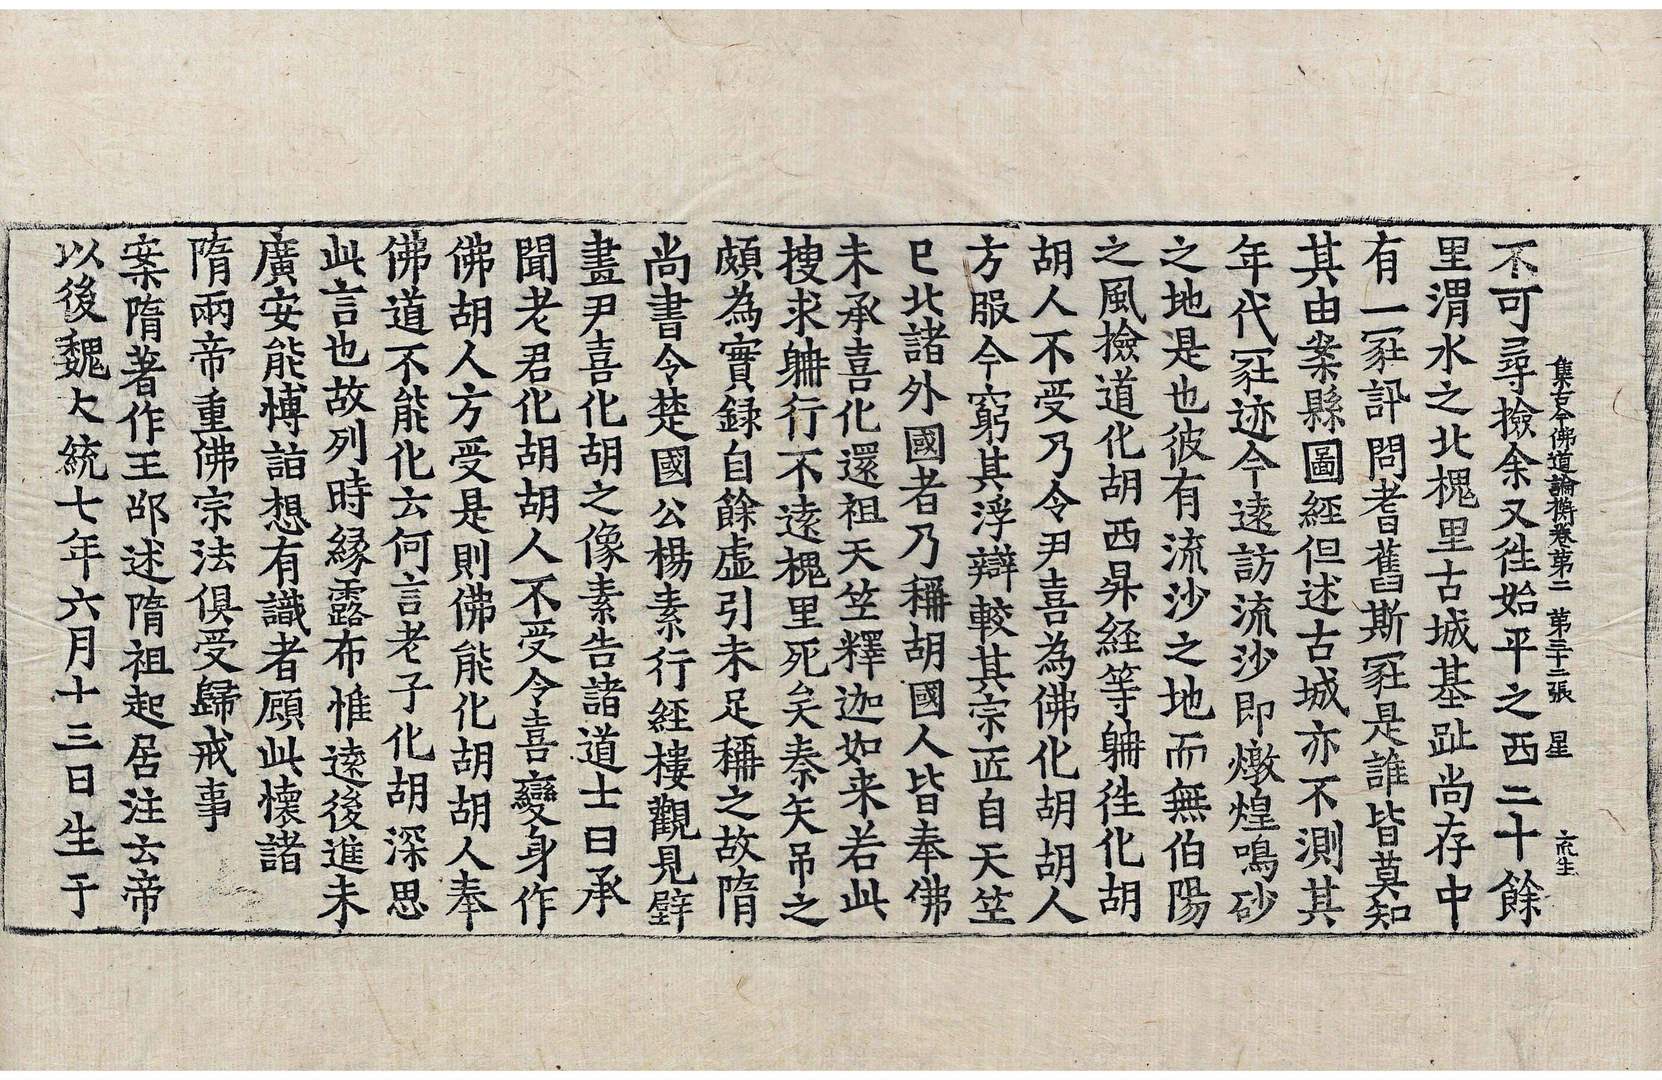 集古今佛道論衡卷第二 第三十二張 星
不可尋撿余又徃始平之西二十餘
里渭水之北槐里古城基趾尚存中
有一冡訊問耆舊斯冡是誰皆莫知
其由案縣圖經但述古城亦不測其
年代冡迹今遠訪流沙即燉煌鳴砂
之地是也彼有流沙之地而無伯陽
之風撿道化胡西昇經等躰徃化胡
胡人不受乃令尹喜為佛化胡胡人
方服今窮其浮辯較其宗匠自天竺
巳北諸外國者乃稱胡國人皆奉佛
未承喜化還祖天竺釋迦如来若此
捜求躰行不遠槐里死矣秦矢吊之
頗為實録自餘虛引未足稱之故隋
尚書令楚國公楊素行經樓觀見壁
畫尹喜化胡之像素告諸道士曰承
聞老君化胡胡人不受令喜變身作
佛胡人方受是則佛能化胡胡人奉
佛道不能化云何言老子化胡深思
此言也故列時縁露布惟遠後進未
廣安能愽詣想有識者顧此懷諸
隋兩帝重佛宗法俱受歸戒事
案隋著作王邵述隋祖起居注云帝
以後魏大統七年六月十三日生于